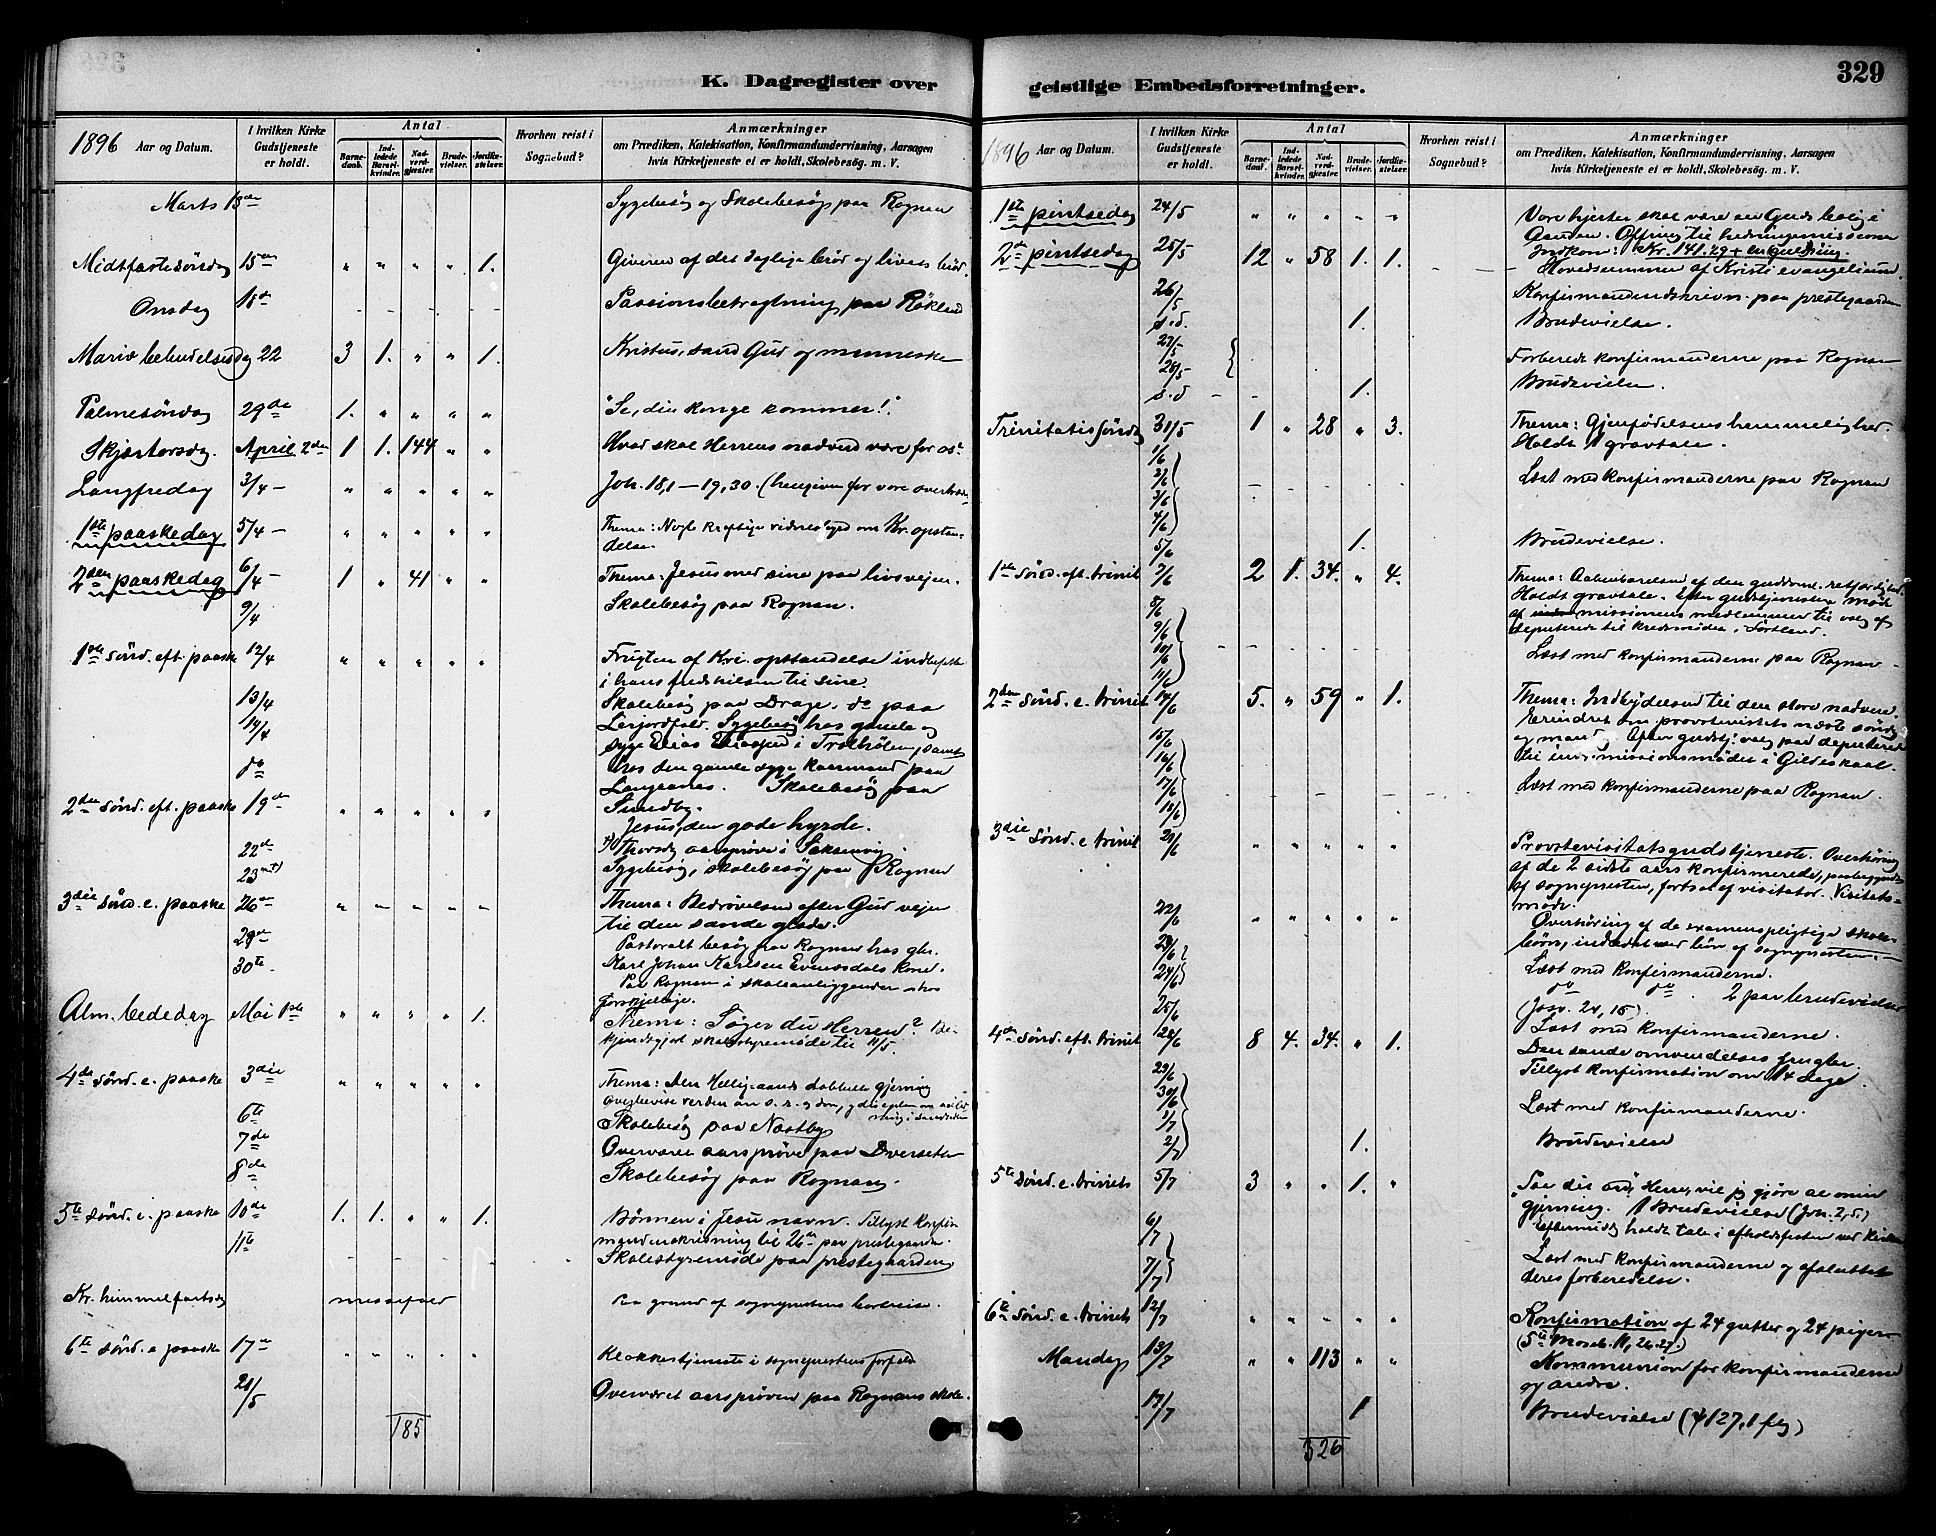 329
K. Dagregister over
geistlige Embedsforretninger.
1896 Aar og Datum.
I hvilken Kirke Gudstjeneste er holdt.
Antal
Barnedaab.
Indledede Barselkvinder.
Nadverdgjester.
Brudevielser.
Jordfæstelser.
Hvorhen reist i Sognebud?
Anmærkninger
om Prædiken, Katekisation, Konfirmandundervisning, Aarsagen
hvis Kirketjeneste ei er holdt, Skolebesøg. m. V.
Marts 13de Sygebesøg og Skolebesøg paa Rognan
Midtfastesöndag 15de " " " " 1. Giveren af det daglige bröd og livets bröd.
Onsdag 18de - - - - - Passionsbetragtning paa Røkland
Mariæ bebudelsesdag 22 3 1. " " 1. Kristus, sand Gud og menneske
Palmesöndag 29de 1. " " " " "Se, din konge kommer!"
Skjærtorsdag. April 2den 1 1. 144 " " Hvad skal Herrens nadverd være for os?
Langfredag 3/4 - " " " " " Joh. 18,1 - 19,30. (hengiven for vore
1ste paaskedag 5/4 - " " " " " Thema: Nogle kraftige vidnesbyrd om Kr. opstan-
delse.
2den paaskedag 6/4 - 1 " 41 " " Thema: Jesus med sine paa livsvejen.
9/4 Skolebesøg paa Rognan.
1ste sönd. eft. paaske 12/4 " " " " " Frugten af Kri. opstandelse indbefattet
i hans fredhilsen til sine.
13/4 Skolebesøg paa Drage. do paa
14/4 Leijordfald. Sygebesøg hos gamle og
syge Elias i samt
do hos den gamle syge paa
Langsanes. Skolebesøg paa
2den sönd. eft. paaske 19de " " " " " Sundby.
Jesus, den gode hyrde.
22de Thorsdag aarsprøve i Saksenvig
23 Sygebesøg, skolebesøg paa Rognan
3die sönd. e. paaske 26de " " " " " Thema: Bedrøvelsen efter Gud vejen
til den sande glæde.
29de Pastoralt besøg paa Rognan hos gbr.
30te Karl Johan Karlsen Evensdals kone.
Paa Rognan i skoleanliggender
Alm. bededag Mai 1ste " " " " 1. Thema: Søger du Herren? Be-
kjendtgjort skolestyremøde til 11/5.
4de sönd. e. paaske 3die " " " " " Thema: Den Hellig-aands dobbelte gjerning
6te Skolebesøg paa Næstby
7de Overværet aarsprøve paa Dverset
8de Skolebesøg paa Rognan.
5te sönd. e. paaske 10de 1. 1. " " 1. Bönnen i Jesu navn. Tillyst konfir-
mandindskrivning til 26de paa prestegaarden.
11te Skolestyremøde paa prestegaarden
Kr. himmelfartsdag messefald Paa grund af sogneprestens bortreise.
6te sönd. e paaske 17de " " " " " Klokkertjeneste i sogneprestens forfald
21/5 Overværet aarsprøven paa Rognans skole.
185
1896 Aar og Datum.
I hvilken Kirke Gudstjeneste er holdt.
Antal
Barnedaab.
Indledede Barselkvinder.
Nadverdgjester.
Brudevielser.
Jordfæstelser.
Hvorhen reist i Sognebud?
Anmærkninger
om Prædiken, Katekisation, Konfirmandundervisning, Aarsagen
hvis Kirketjeneste ei er holdt, Skolebesøg. m. V.
1ste pintsedag 24/5 " " " " " Vore hjerter skal være en Guds bolig i
Aanden. Offring til hedningemissionen
Indkom: Kr. 141.29 + en guldring.
2den pintsedag 25/5 12 " 58 1. 1. Hovedsummen af Kristi evangelium.
26/5 Konfirmandindskrivn. paa prestegaarden
s.d. 1. Brudevielse.
27/5
28/5 Forberedt konfirmanderne paa Rognan
s.d 1. Brudevielse.
Trinitatissöndag 31/5 1 " 28 " 3. Thema: Gjenfødelsens hemmelighed.
Holdt 1 gravtale.
1/6
2/6 Læst med konfirmanderne paa Rognan
3/6
4/6
5/6 1. Brudevielse.
1ste Sönd. eft. trinit 7/6 2 1. 34. " 4. Thema: Aabenbarelsen af den guddom. retfærdighed.
Holdt gravtale. Efter gudstjenesten møde
af missionens medlemmer til valg af
deputerede til kredsmøde i Sortland.
8/6
9/6
10/6 Læst med konfirmanderne paa Rognan
11/6
2den Sönd. e. trinit 14/6 5. " 59 " 1. Thema: Indbydelsen til den store nadvere.
Erindret om provstevisitats næste söndag
og mandag. Efter gudstj. valg paa deputerede
til indremissionsmødet i Gildeskaal.
15/6
16/6
17/6 Læst med konfirmanderne paa Rognan.
18/6
3die Sönd. e trinit 21/6 " " " " " Provstevisitatsgudstjeneste. Overhøring
af de 2 sidste aars konfirmerede, paabegyndt
af sognepresten, fortsat af visitator. Visitats-
møde.
22/6 " " " " " Overhøring af de examenspligtige skole-
börn, indledet med bön af sognepresten.
23/6 Læst med konfirmanderne.
24/6 do do 2 par brudevielser
25/6 (Josv. 24, 15). Læst med konfirmanderne.
4de Sönd. eft. trinit 28/6 8 4. 34. " 1. Den sande omvendelses frugter.
Tillyst konfirmation om 14 dage.
29/6
30/6 Læst med konfirmanderne.
1/7
2/7 1. Brudevielse
5te Sönd. e. trinits 5/7 3 " " 1. " "Paa dit ord, Herre, vil jeg gjøre al min
gjerning. 1 Brudevielse (Joh. 2,5.)
Eftermidd. holdt tale i afholdsfesten ved kirken
6/7 Læst med konfirmanderne og afsluttet
7/7 deres forberedelse.
6te Sönd. e. trinits 12/7 " " " " " Konfirmation af 24 gutter og 24 piger
(5te Moseb. 11, 26.27.)
Mandag 13/7 " " 113 " " Kommunion for konfirmanderne
og andre.
17/7 1 Brudevielse (ψ 127,1 flg)
326